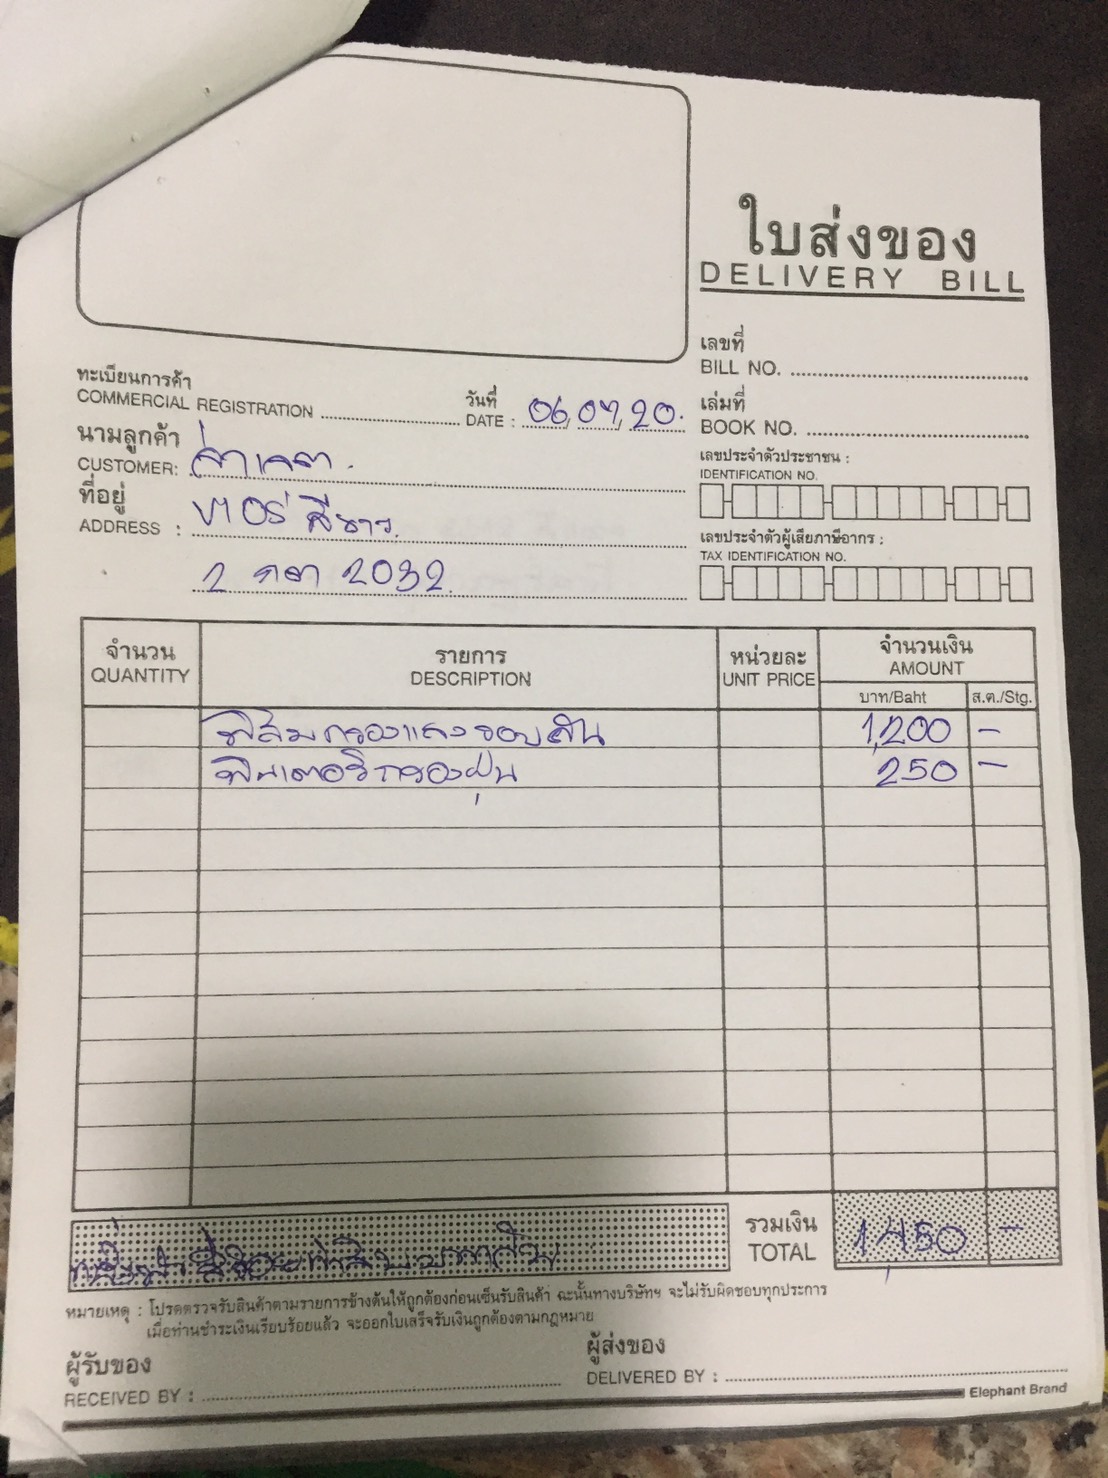 ใบส่งของ
DELIVERY BILL
เลขที่
BILL NO.
ทะเบียนการค้า
COMMERCIAL REGISTRATION
วันที่
DATE : 06,07,20.
เล่มที่
BOOK NO.
นามลูกค้า
CUSTOMER:
เลขประจำตัวประชาชน :
IDENTIFICATION NO.
ที่อยู่
ADDRESS :
เลขประจำตัวผู้เสียภาษีอากร :
TAX IDENTIFICATION NO.
2032
จำนวน รายการ หน่วยละ จำนวนเงิน
QUANTITY DESCRIPTION UNIT PRICE AMOUNT
บาท/Baht ส.ต./Stg.
ฟิล์มกรองแสงรอบคัน 1,200 -
กรองฝุ่น 250 -
รวมเงิน
TOTAL 1,450 -
หมายเหตุ : โปรดตรวจรับสินค้าตามรายการข้างต้นให้ถูกต้องก่อนเซ็นรับสินค้า ฉะนั้นทางบริษัทฯ จะไม่รับผิดชอบทุกประการ
เมื่อท่านชำระเงินเรียบร้อยแล้ว จะออกใบเสร็จรับเงินถูกต้องตามกฎหมาย
ผู้รับของ
RECEIVED BY :
ผู้ส่งของ
DELIVERED BY :
Elephant Brand